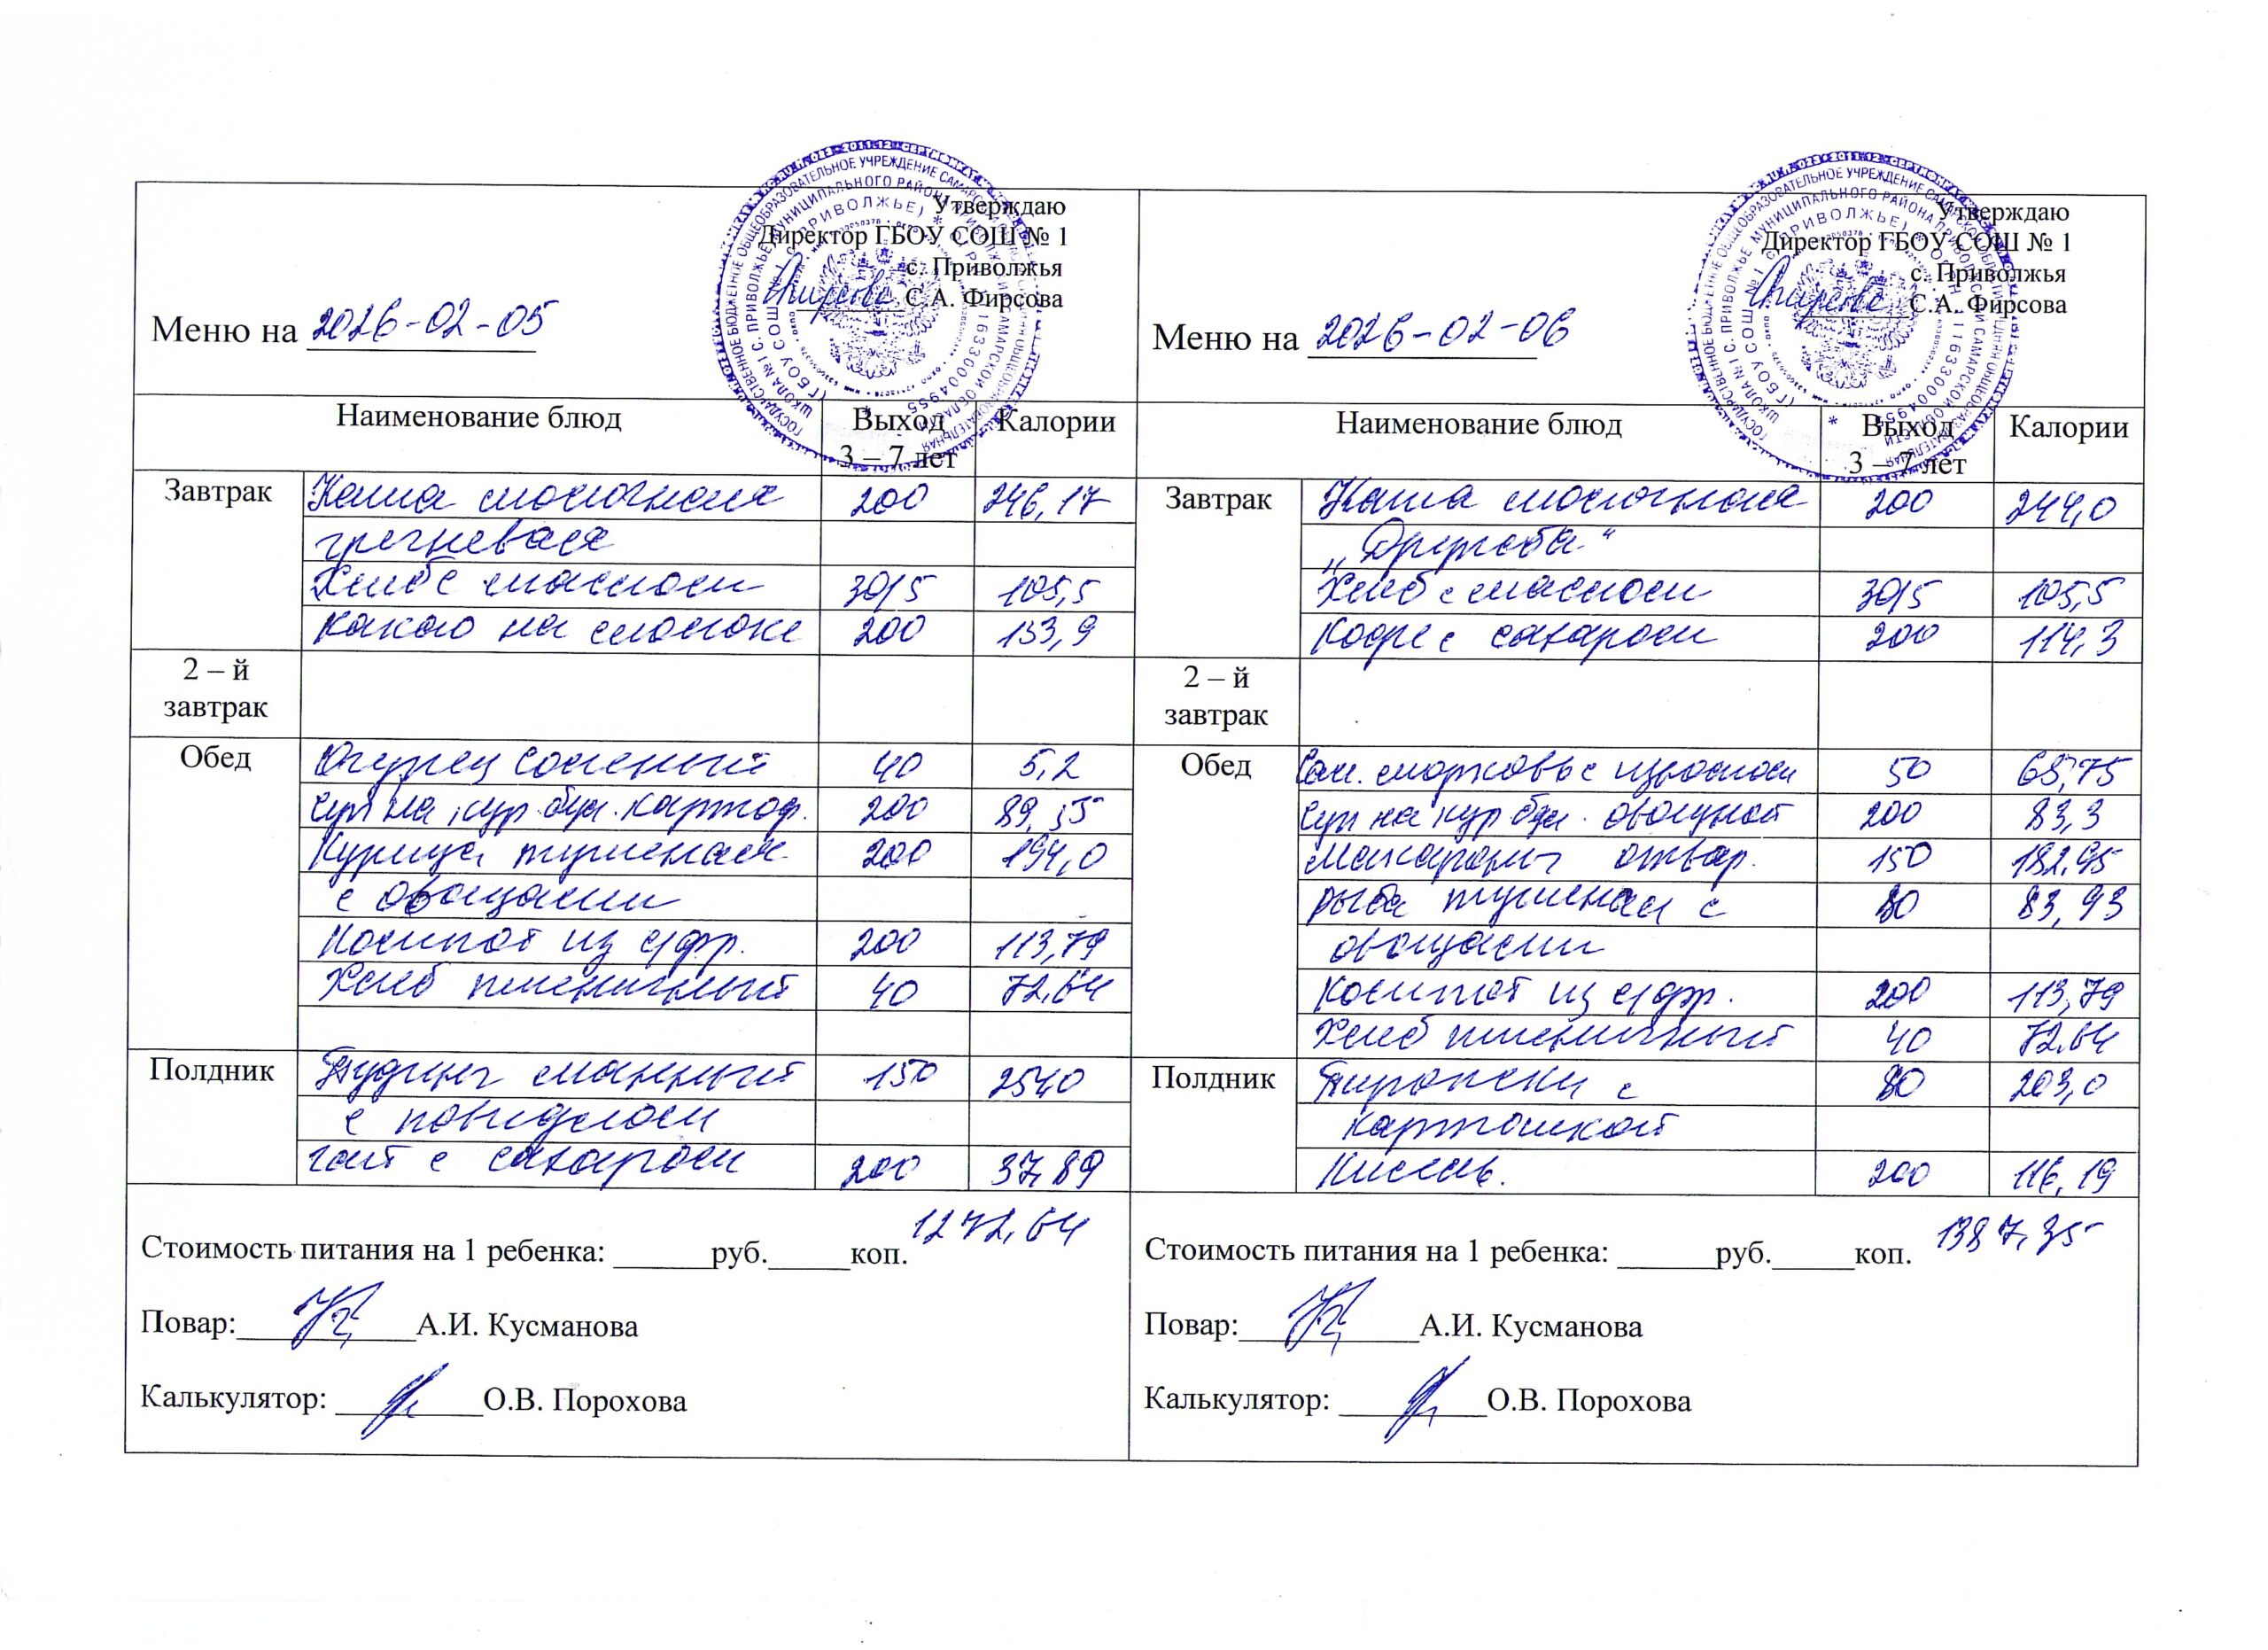 Утверждаю
Директор ГБОУ СОШ № 1
с. Приволжья
С.А. Фирсова
Меню на 2026-02-05
Наименование блюд Выход 3 – 7 лет Калории
Завтрак Каша молочная 200 246,17
гречневая
Хлеб с маслом 30/5 105,5
Какао на молоке 200 153,9
2 – й завтрак
Обед Огурец соленый 40 5,2
Суп на кур. бул. картоф. 200 89,55
Курица тушеная 200 194,0
с овощами
Компот из с/фр. 200 113,79
Хлеб пшеничный 40 72,64
Полдник Пудинг манный 150 254,0
с повидлом
чай с сахаром 200 37,89
Стоимость питания на 1 ребенка: ______руб._____коп. 1272,64
Повар: А.И. Кусманова
Калькулятор: О.В. Порохова
Утверждаю
Директор ГБОУ СОШ № 1
с. Приволжья
С.А. Фирсова
Меню на 2026-02-06
Наименование блюд Выход 3 – 7 лет Калории
Завтрак Каша молочная 200 244,0
„Дружба“
Хлеб с маслом 30/5 105,5
Кофе с сахаром 200 114,3
2 – й завтрак
Обед Сал. морковь с изюмом 50 65,75
Суп на кур бул. овощной 200 83,3
Макароны отвар. 150 182,95
рыба тушеная с 80 83,93
овощами
Компот из с/фр. 200 113,79
Хлеб пшеничный 40 72.64
Полдник Пирожки с 80 203,0
картошкой
Кисель. 200 116,19
Стоимость питания на 1 ребенка: ______руб._____коп. 1387,35
Повар: А.И. Кусманова
Калькулятор: О.В. Порохова